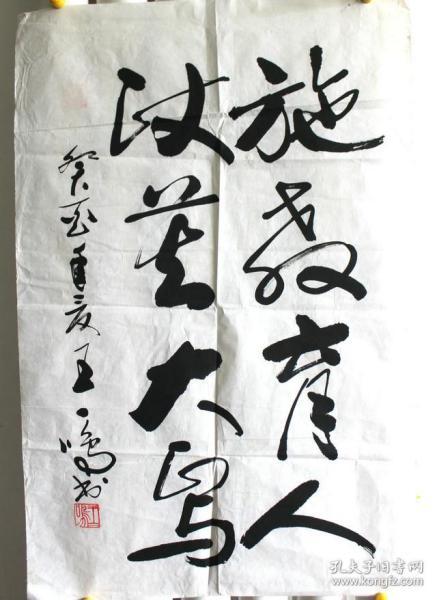 施教育人
功莫大焉
癸酉年夏王一鸣书
孔夫子旧书网
www.kongfz.com